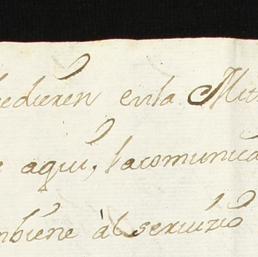 cedieren enla Mit
e aqui, la comunica
mbiene àl seruizio